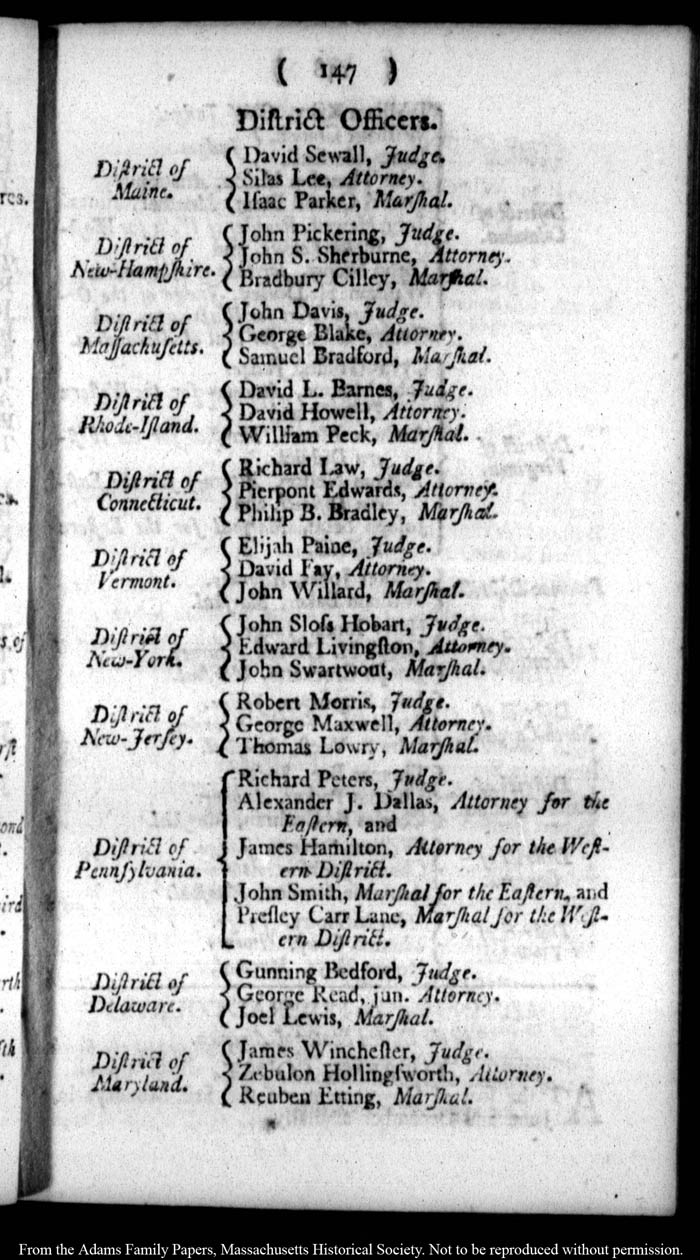 ( 147 )
Diſtrict Officers.
Diſtrict of
Maine.
David Sewall, Judge.
Silas Lee, Attorney.
Iſaac Parker, Marſhal.
Diſtrict of
New-Hampſhire.
John Pickering, Judge.
John S. Sherburne, Attorney.
Bradbury Cilley, Marſhal.
Diſtrict of
Maſſachuſetts.
John Davis, Judge.
George Blake, Attorney.
Samuel Bradford, Marſhal.
Diſtrict of
Rhode-Iſland.
David L. Barnes, Judge.
David Howell, Attorney.
William Peck, Marſhal.
Diſtrict of
Connecticut.
Richard Law, Judge.
Pierpont Edwards, Attorney.
Philip B. Bradley, Marſhal.
Diſtrict of
Vermont.
Elijah Paine, Judge.
David Fay, Attorney.
John Willard, Marſhal.
Diſtrict of
New-York.
John Sloſs Hobart, Judge.
Edward Livingſton, Attorney.
John Swartwout, Marſhal.
Diſtrict of
New-Jerſey.
Robert Morris, Judge.
George Maxwell, Attorney.
Thomas Lowry, Marſhal.
Diſtrict of
Pennſylvania.
Richard Peters, Judge.
Alexander J. Dallas, Attorney for the
Eaſtern, and
James Hamilton, Attorney for the Weſt-
ern Diſtrict.
John Smith, Marſhal for the Eaſtern, and
Preſley Carr Lane, Marſhal for the Weſt-
ern Diſtrict.
Diſtrict of
Delaware.
Gunning Bedford, Judge.
George Read, jun. Attorney.
Joel Lewis, Marſhal.
Diſtrict of
Maryland.
James Wincheſter, Judge.
Zebulon Hollingſworth, Attorney.
Reuben Etting, Marſhal.
From the Adams Family Papers, Massachusetts Historical Society. Not to be reproduced without permission.